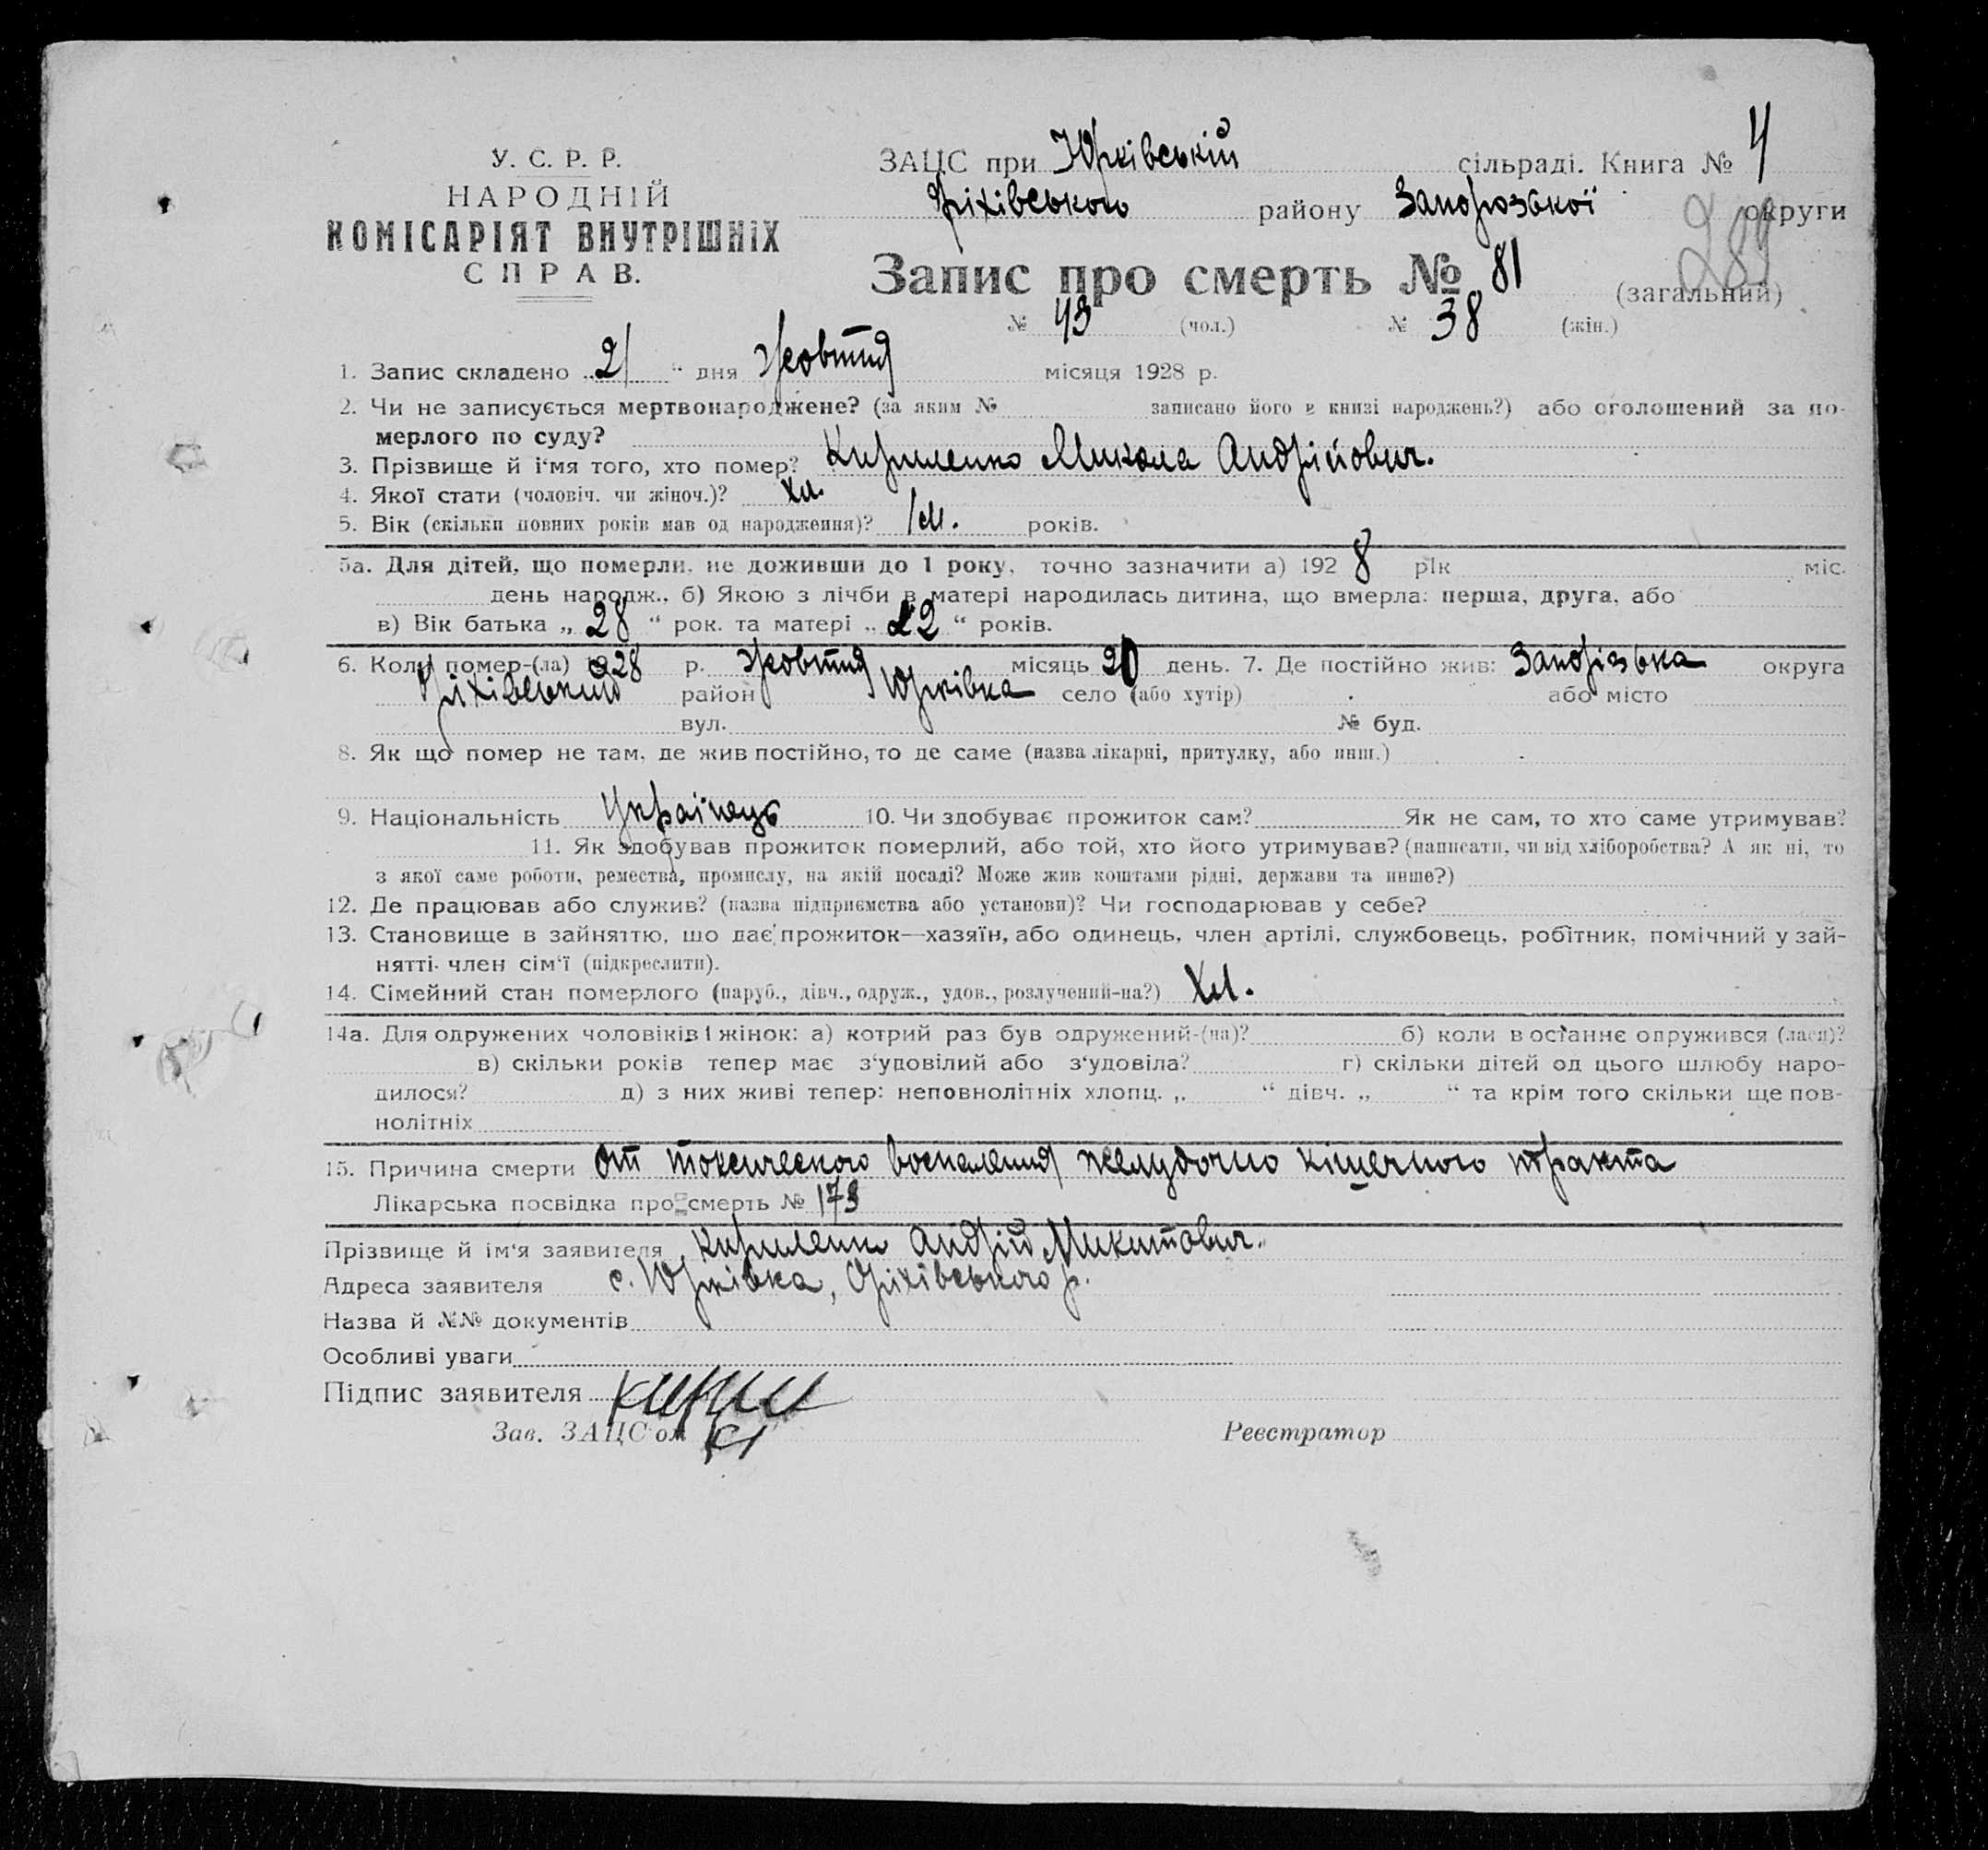 У. С. Р. Р.
НАРОДНІЙ
КОМІСАРІЯТ ВНУТРІШНІХ
СПРАВ.
ЗАЦС при Юрківській сільраді. Книга № 4
Оріхівського району Запорозької округи
289
Запис про смерть № 81
(загальний)
№ 43 (чол.) № 38 (жін.)
1. Запис складено „ 21 “ дня Жовтня місяця 1928 р.
2. Чи не записується мертвонароджене? (за яким № записано його в книзі народжень?) або оголошений за по-
мерлого по суду?
3. Прізвище й і'мя того, хто помер? Кириленко Микола Андрійович.
4. Якої стати (чоловіч. чи жіноч.)? хл.
5. Вік (скільки повних років мав од народження)? 1 м. років.
5а. Для дітей, що померли, не доживши до 1 року, точно зазначити а) 1928 рік міс.
день народж., б) Якою з лічби в матері народилась дитина, що вмерла: перша, друга, або
в) Вік батька „ 28 “ рок. та матері „ 22 “ років.
6. Коли помер-(ла) 1928 р. Жовтня місяць 20 день. 7. Де постійно жив: Запорізька округа
Оріхівський район Юрківка село (або хутір) або місто
вул. № буд.
8. Як що помер не там, де жив постійно, то де саме (назва лікарні, притулку, або инш.)
9. Національність Українець 10. Чи здобуває прожиток сам? Як не сам, то хто саме утримував?
11. Як здобував прожиток померлий, або той, хто його утримував? (написати, чи від хліборобства? А як ні, то
з якої саме роботи, ремества, промислу, на якій посаді? Може жив коштами рідні, держави та инше?)
12. Де працював або служив? (назва підприємства або установи)? Чи господарював у себе?
13. Становище в зайняттю, що дає прожиток—хазяїн, або одинець, член артілі, службовець, робітник, помічний у зай-
нятті член сім'ї (підкреслити).
14. Сімейний стан померлого (паруб., дівч., одруж., удов., розлучений-на?) Хл.
14а. Для одружених чоловіків і жінок: а) котрий раз був одружений-(на)? б) коли востаннє одружився (лася)?
в) скільки років тепер має з'удовілий або з'удовіла? г) скільки дітей од цього шлюбу наро-
дилося? д) з них живі тепер: неповнолітніх хлопц. „ “ дівч. „ “ та крім того скільки ще пов-
нолітніх
15. Причина смерти От токсического воспаления желудочно кишечного тракта
Лікарська посвідка про смерть № 173
Прізвище й ім'я заявителя Кириленко Андрій Микитович.
Адреса заявителя с. Юрківка, Оріхівського р.
Назва й №№ документів
Особливі уваги
Підпис заявителя
Зав. ЗАЦС'ом
Реєстратор